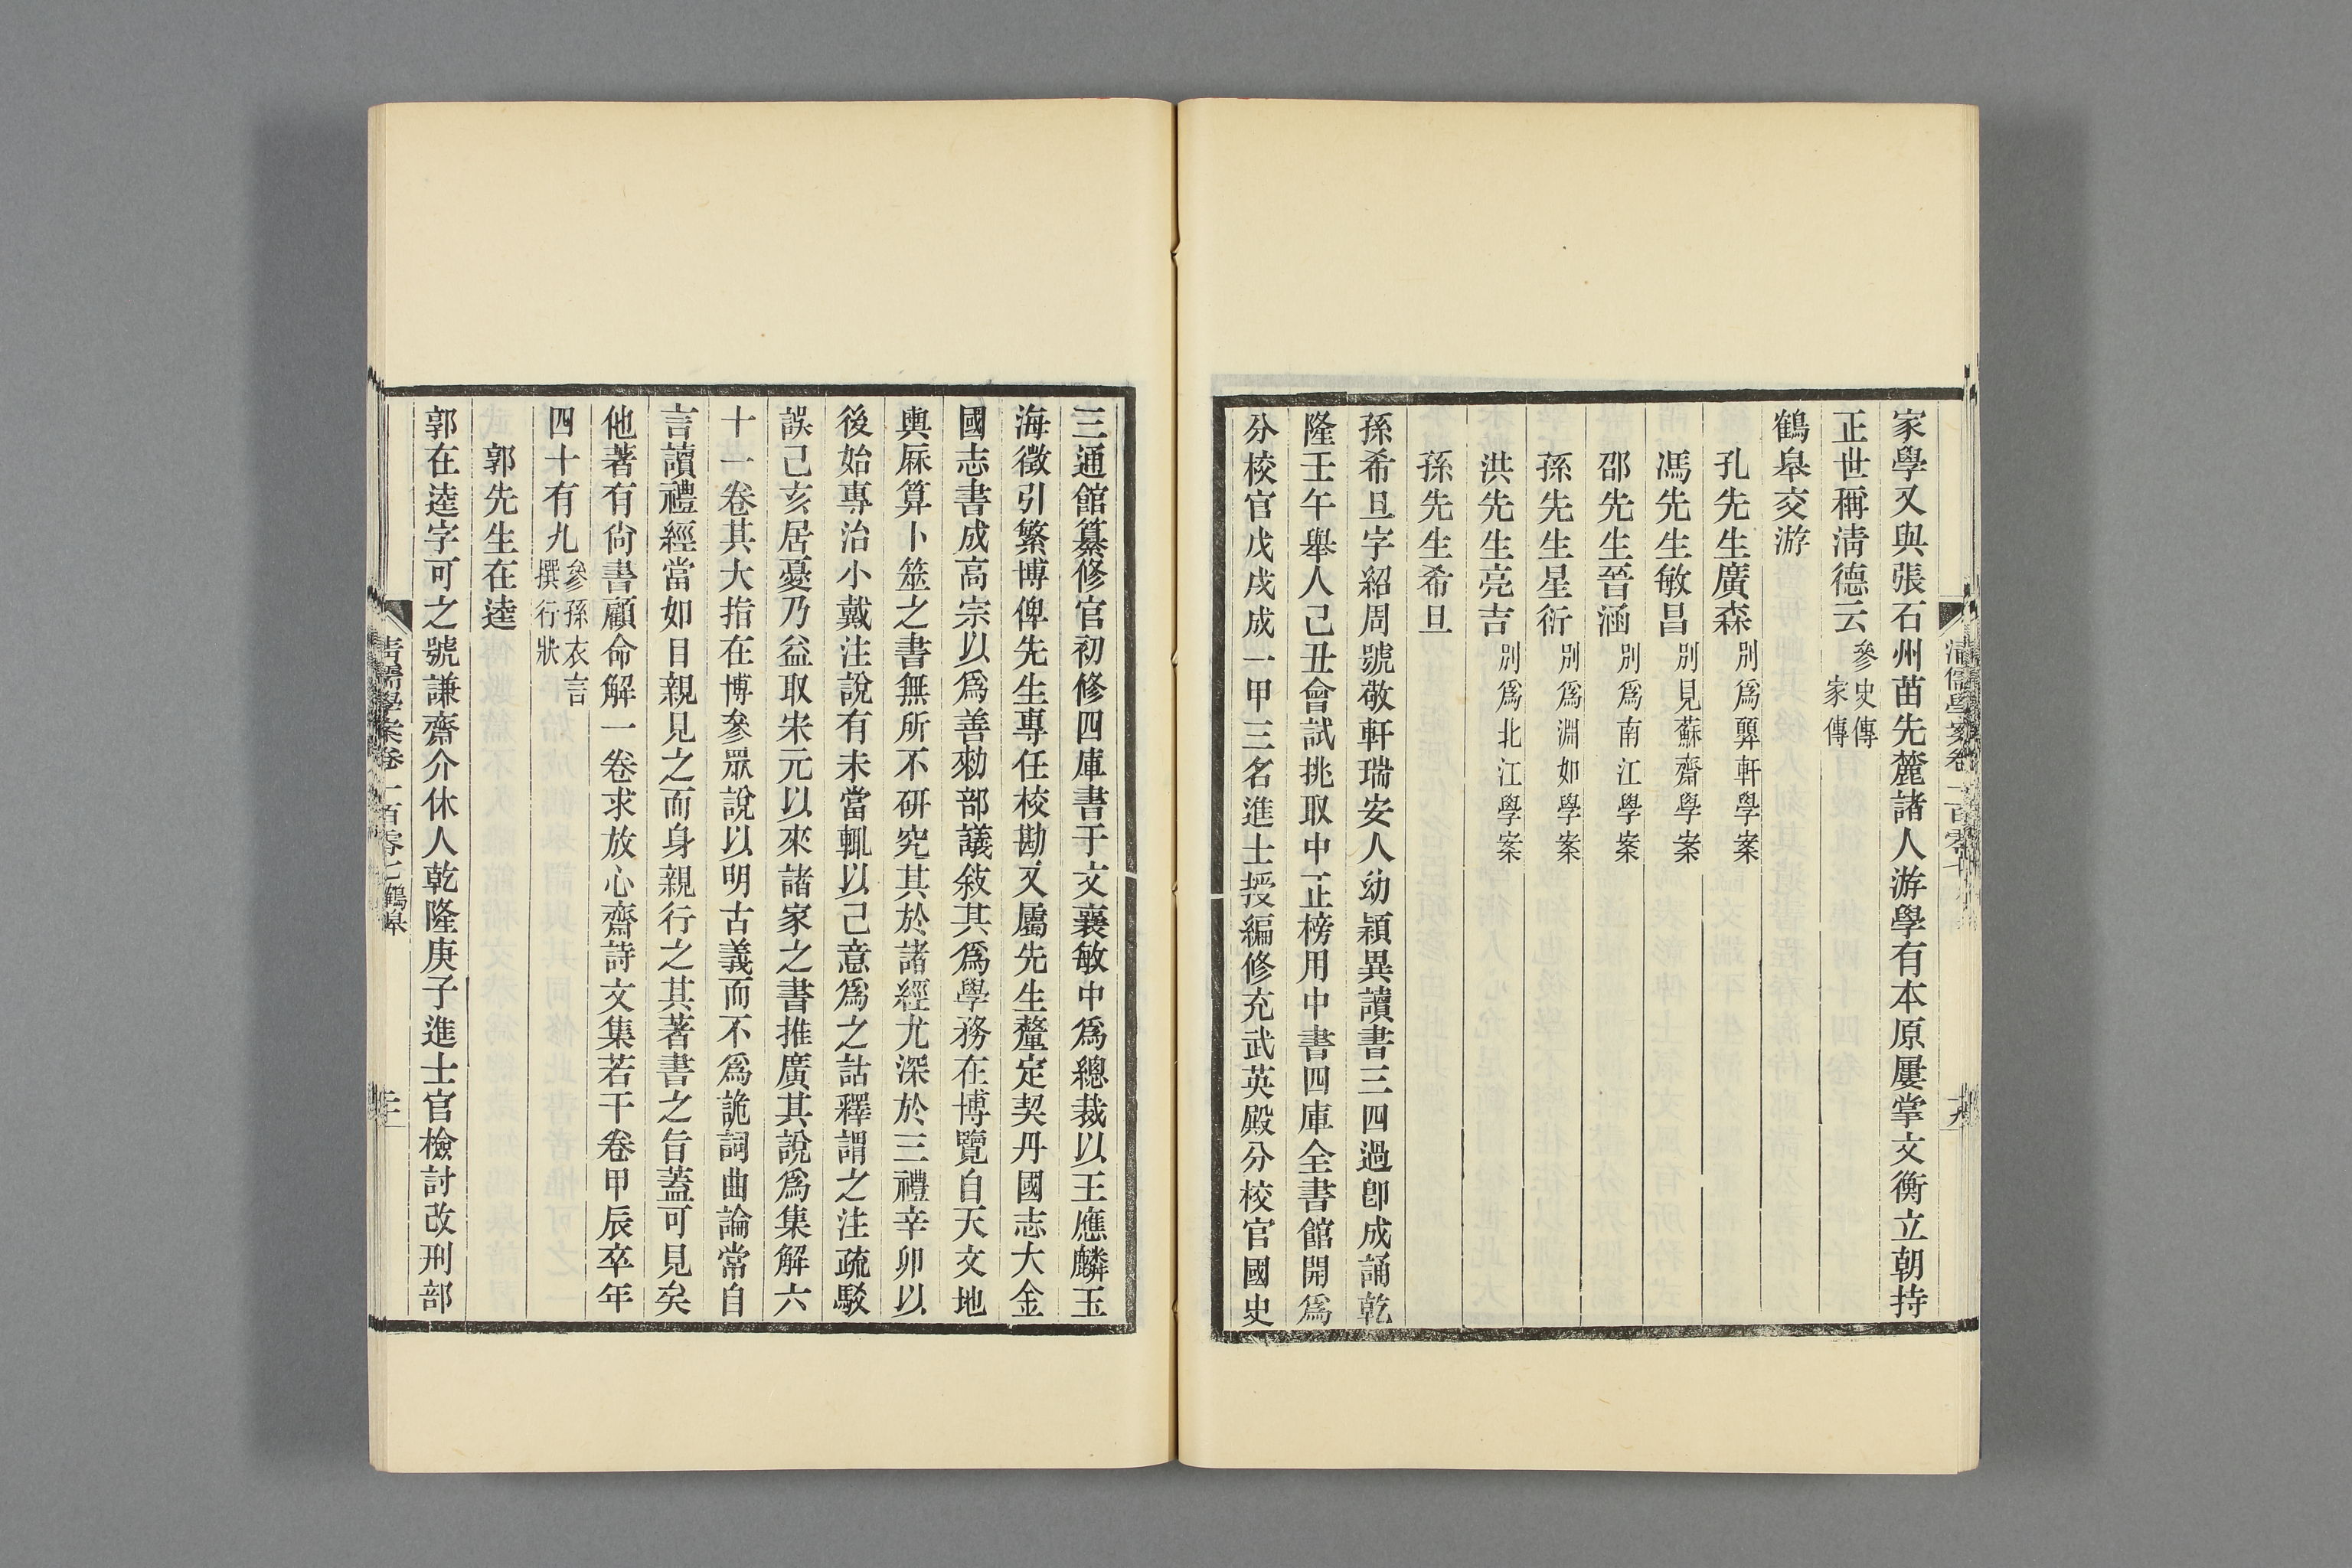 家學又與張石州苗先麓諸人游學有本原屢掌文衡立朝持
正世稱淸德云參史傳家傳
鶴皋交游
孔先生廣森別爲顨軒學案
馮先生敏昌別見蘇齋學案
邵先生晉涵別爲南江學案
孫先生星衍別爲淵如學案
洪先生亮吉別爲北江學案
孫先生希旦
孫希旦字紹周號敬軒瑞安人幼穎異讀書三四過卽成誦乾
隆壬午舉人己丑會試挑取中正榜用中書四庫全書館開爲
分校官戊戌成一甲三名進士授編修充武英殿分校官國史
三通館纂修官初修四庫書于文襄敏中爲總裁以王應麟玉
海徵引繁博俾先生專任校勘又屬先生釐定契丹國志大金
國志書成高宗以爲善勑部議敍其爲學務在博覽自天文地
輿厤算卜筮之書無所不硏究其於諸經尤深於三禮辛卯以
後始專治小戴注說有未當輒以己意爲之詁釋謂之注疏駁
誤己亥居憂乃益取宋元以來諸家之書推廣其說爲集解六
十一卷其大指在博參眾說以明古義而不爲詭詞曲論常自
言讀禮經當如目親見之而身親行之其著書之旨蓋可見矣
他著有尙書顧命解一卷求放心齋詩文集若干卷甲辰卒年
四十有九參孫衣言撰行狀
郭先生在逵
郭在逵字可之號謙齋介休人乾隆庚子進士官檢討改刑部
清儒學案卷一百零七鶴皋